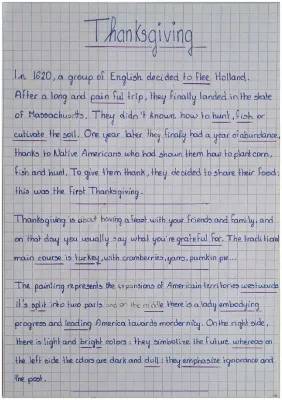 Thanksgiving
In 1620, a group of English decided to flee Holland.
After a long and painful trip, they finally landed in the state
of Massachusetts. They didn't known how to hunt, fish or
cultivate the soil. One year later they finally had a year of abundance,
thanks to Native Americans who had shown them how to plant corn,
fish and hunt. To give them thank, they decided to share their food;
this was the first Thanksgiving.
Thanksgiving is about having a feast with your friends and family, and
on that day you usually say what you're grateful for. The traditional
main course is turkey, with cranberries, yams, pumkin pie...
The painting represents the expansions of American territories westwards
it's split into two parts and on the middle there is a lady embodying
progress and leading America towards mordernity. On the right side,
there is light and bright colors: they symbolize the future whereas on
the left side the colors are dark and dull: they emphasize ignorance and
the past.